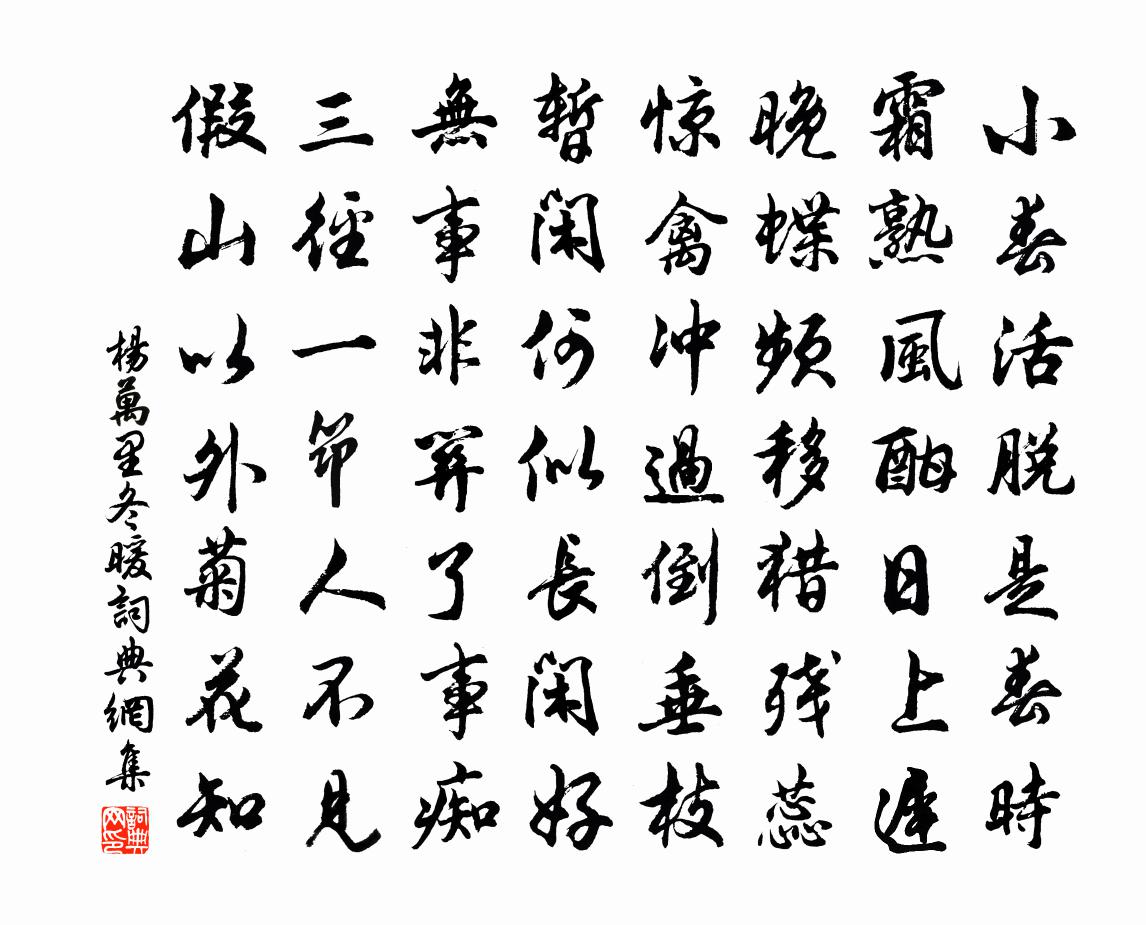 小春活脱是春時
霜熟風酣日上遲
晚蝶頻移猎残蕊
惊禽冲過倒垂枝
暫閑何似長閑好
無事非関了事痴
三徑一笻人不見
假山以外菊花知
楊萬里冬暖詞典網集
詞典網印